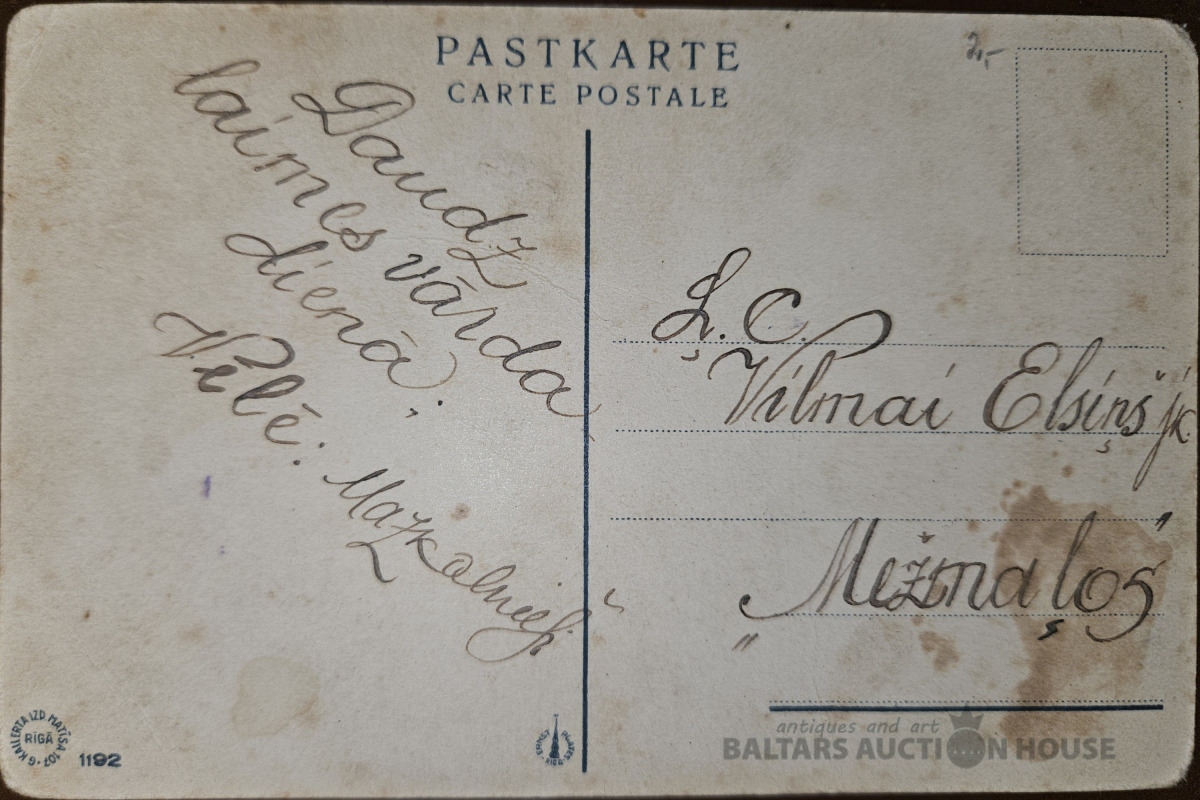 PASTKARTE
CARTE POSTALE
2,-
Daudz
laimes vārda
dienā.
Vēlē.
Ļ. C.
Vilmai Elsiņš jk.
„Mežmaļos"
G. KALLERTA IZD. MATĪSA 107.
RĪGĀ
1192
antiques and art
BALTARS AUCTION HOUSE